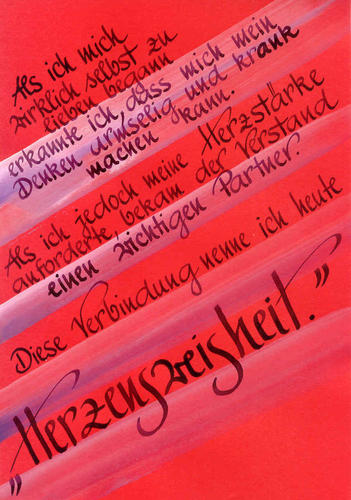 Als ich mich
wirklich selbst zu
lieben begann
erkannte ich, dass mich mein
Denken armselig und krank
machen kann.
Als ich jedoch meine Herzstärke
anforderte, bekam der Verstand
einen wichtigen Partner.
Diese Verbindung nenne ich heute
„Herzensweisheit."